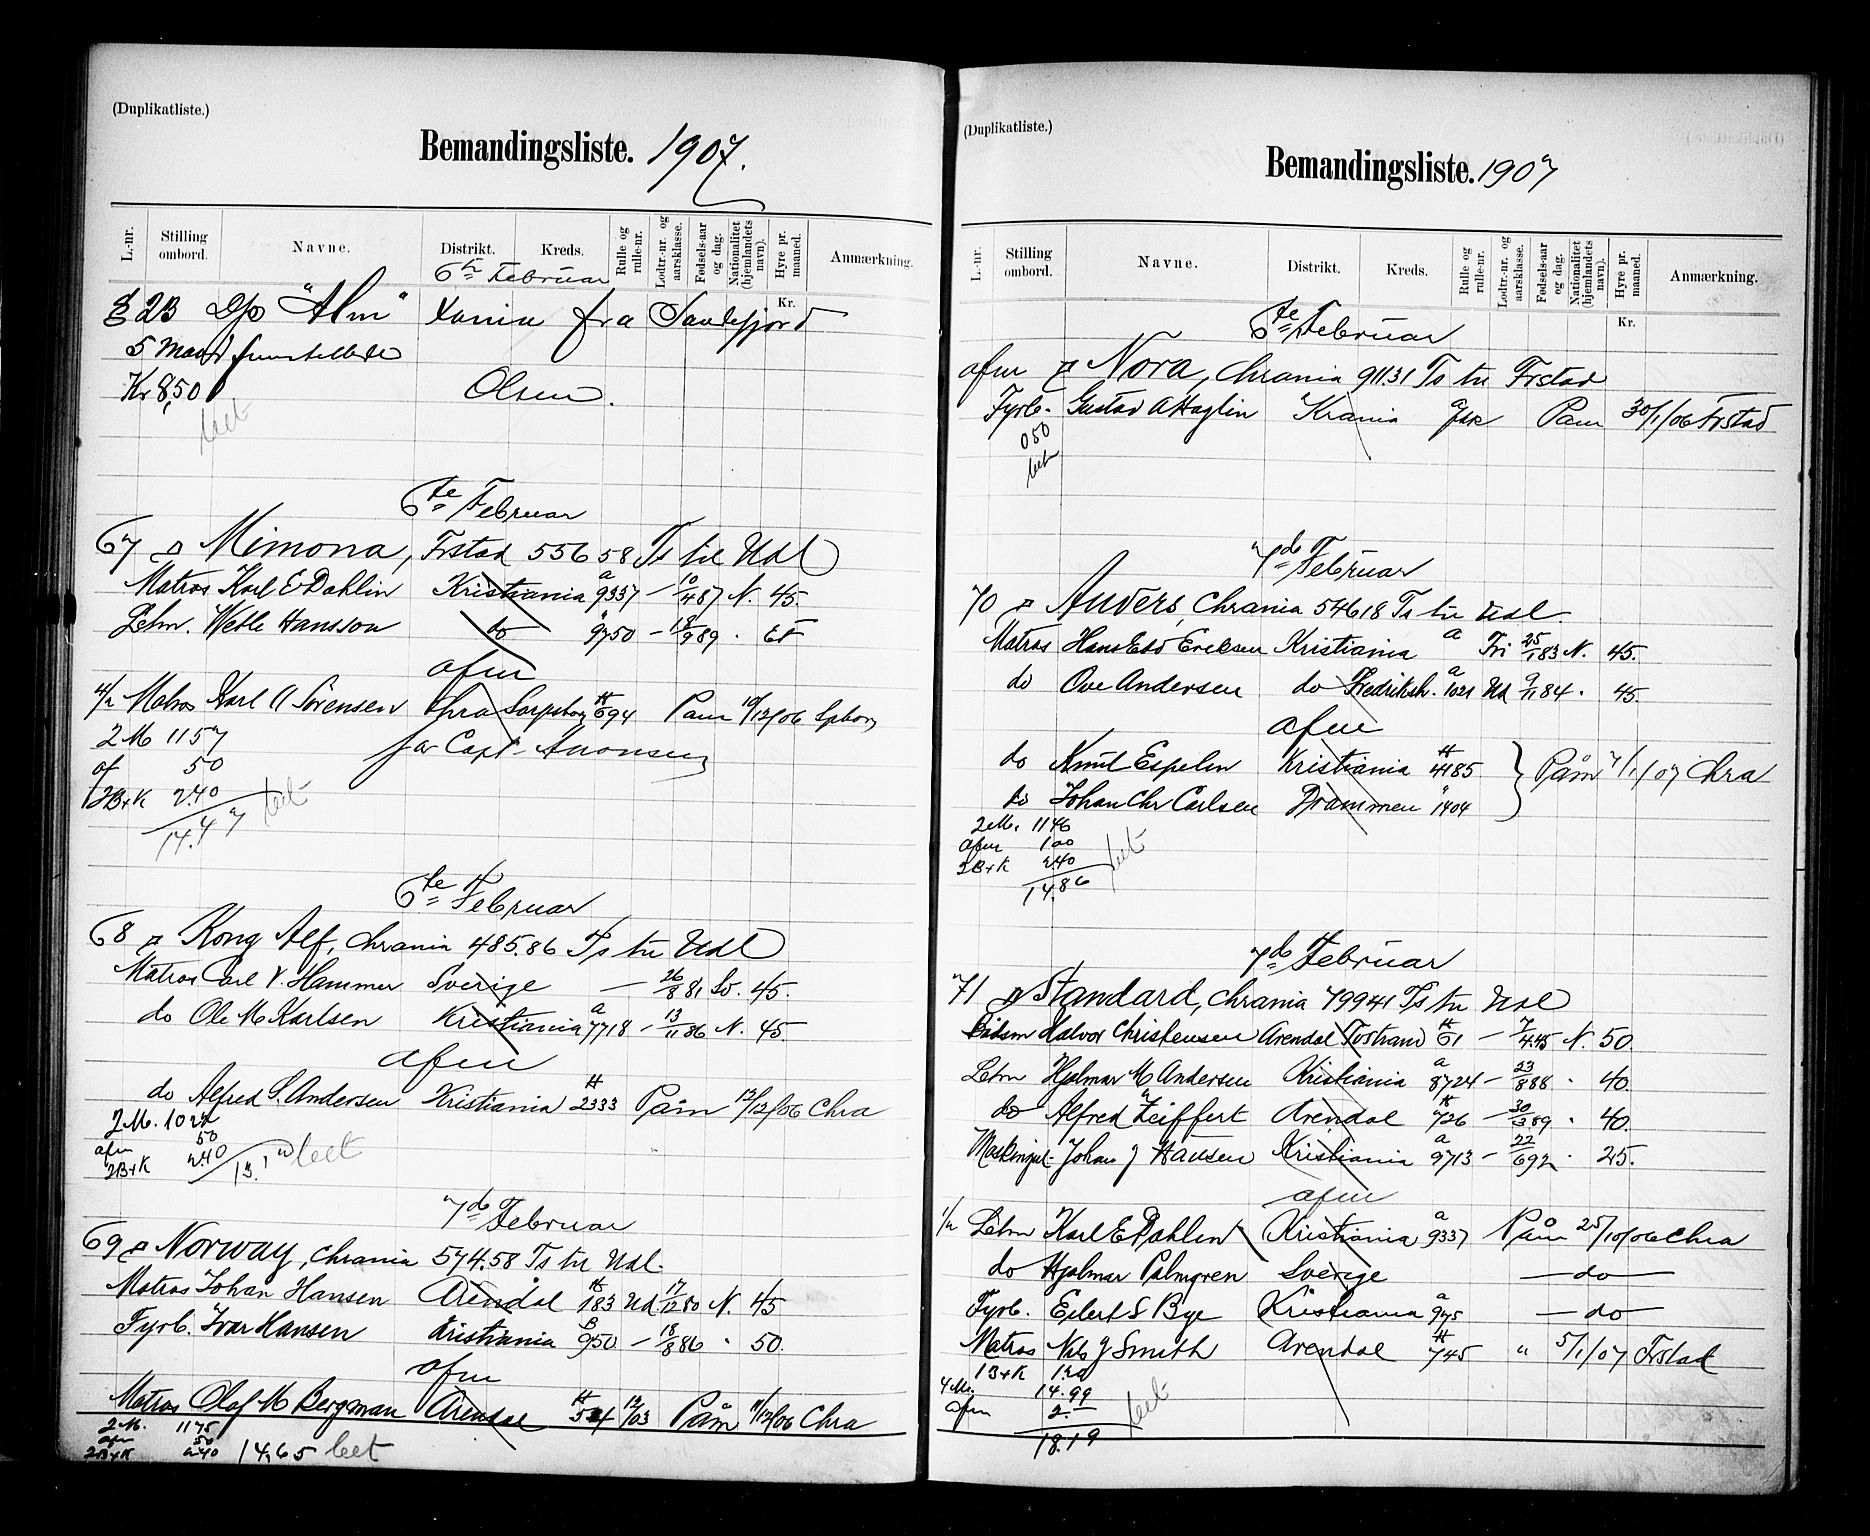 (Duplikatliste.)
Bemandingsliste. 1907.
L.-nr. Stilling ombord. Navne. Distrikt. Kreds. Rulle og rulle-nr. Lodtr.-nr. og aarsklasse. Fødsels-aar og dag. Nationalitet (hjemlandets navn). Hyre pr. maaned. Anmærkning.
Kr.
6te Februar
§ 2B D/s "Alm" Xania fra Sandefjord
5 Mand
Kr 8,50 Olsen.
6te Februar
67 Mimona, Frstad 556 58 Ts til Udl
Matros Karl E Dahlin Kristiania a 9337 – 10/4 87 N. 45.
Letm. Wetle Hansson do " 9750 – 18/9 89 .
afm
4/2 Matros Karl A Sørensen Chra Sarpsborg H 694 Paam 19/12/06 Spborg
2 M 11 57 for Capt. Aronsen
af 50
2B+K 2.40
14.47
6te Februar
68 Kong Alf, Chrania 485.86 Ts til Udl
Matros Carl V. Hammer Sverige – 26/8 81 Sv. 45.
do Ole M Karlsen Kristiania a 7718 – 13/11 86 N. 45.
afm
do Alfred S. Andersen Kristiania H 2333 Påm 12/12/06 Chra
2 M. 10 22
afm 50
2B+K 2.40
7de Februar
69 Norway, Chrania 574.58 Ts til Udl.
Matros Johan Hansen Arendal H 183 Ud. 17/12 80 N. 45
Fyrb. Ivar Hansen Kristiania B 950 – 18/8 86 " 50.
afm
Matros Olaf M Bergman Arendal H 12/03 Påm 11/12/06 Chra
2 M. 11 75
afm 50
2B+K 2.40 14,65
(Duplikatliste.)
Bemandingsliste. 1907
L.-nr. Stilling ombord. Navne. Distrikt. Kreds. Rulle og rulle-nr. Lodtr.-nr. og aarsklasse. Fødsels-aar og dag. Nationalitet (hjemlandets navn). Hyre pr. maaned. Anmærkning.
Kr.
6te Februar
afm Nora, Chrania 91131 Ts til Frstad
Fyrb. Gustav A Haglin Krania a Paam 30/1/06 Frstad
050
7de Februar
70 Anvers, Chrania 54618 Ts til Udl.
Matros Hans Edv Eriksen Kristiania a Fri 25/1 83 N. 45.
do Ove Andersen do Fredriksh. a 1021 Ud 9/11 84 . 45.
afm
do Knut Espelin Kristiania H 4185 } Påm 7/1/07 Chra
do Johan Chr Carlsen Drammen " 1404
2 M. 11 46
afm 1 00
2B+K 2.40
14.86
7de Februar
71 Standard, Chrania 79941 Ts til Udl
Baadsm Halvor Christensen Arendal Tostrand H 61 – 7/4 45 N. 50.
Letm Hjalmar M Andersen Kristiania a 8724 – 23/8 88 . 40.
do Alfred Zeiffert Arendal H 726 – 30/3 89 . 40.
Maskingut Johan J Hansen Kristiania a 9713 – 22/6 92 . 25.
afm
1/2 Letm Karl E Dahlin Kristiania a 9337 Påm 25/10/06 Chra
do Hjalmar Palmgren Sverige — do —
Fyrb. Eilert S Bye Kristiania a 975 — do
Matros Nils J Smith Arendal H 745 " 5/1/07 Frstad
1B+K 1.20
4 M. 14.99
afm 2.–
18.19